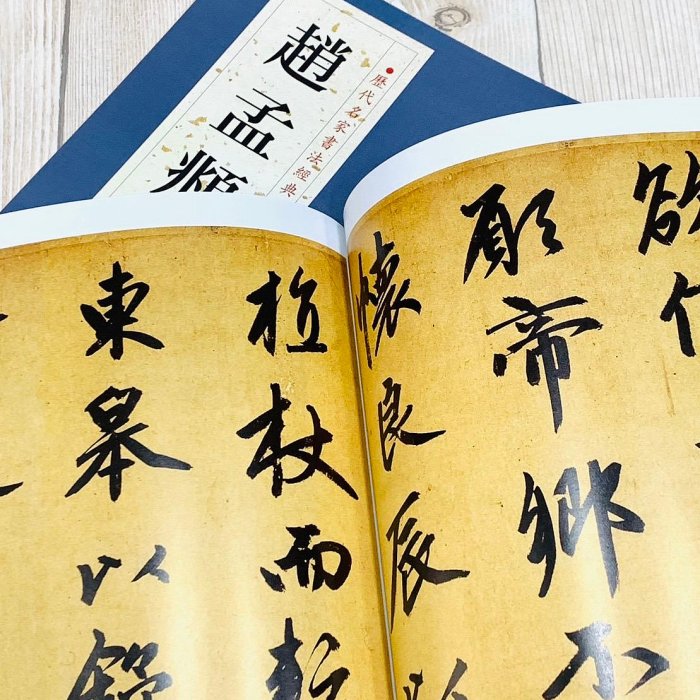 趙孟頫
歷代名家書法經典
欲何
願帝鄉不
懷良辰
植杖而
東皋以舒